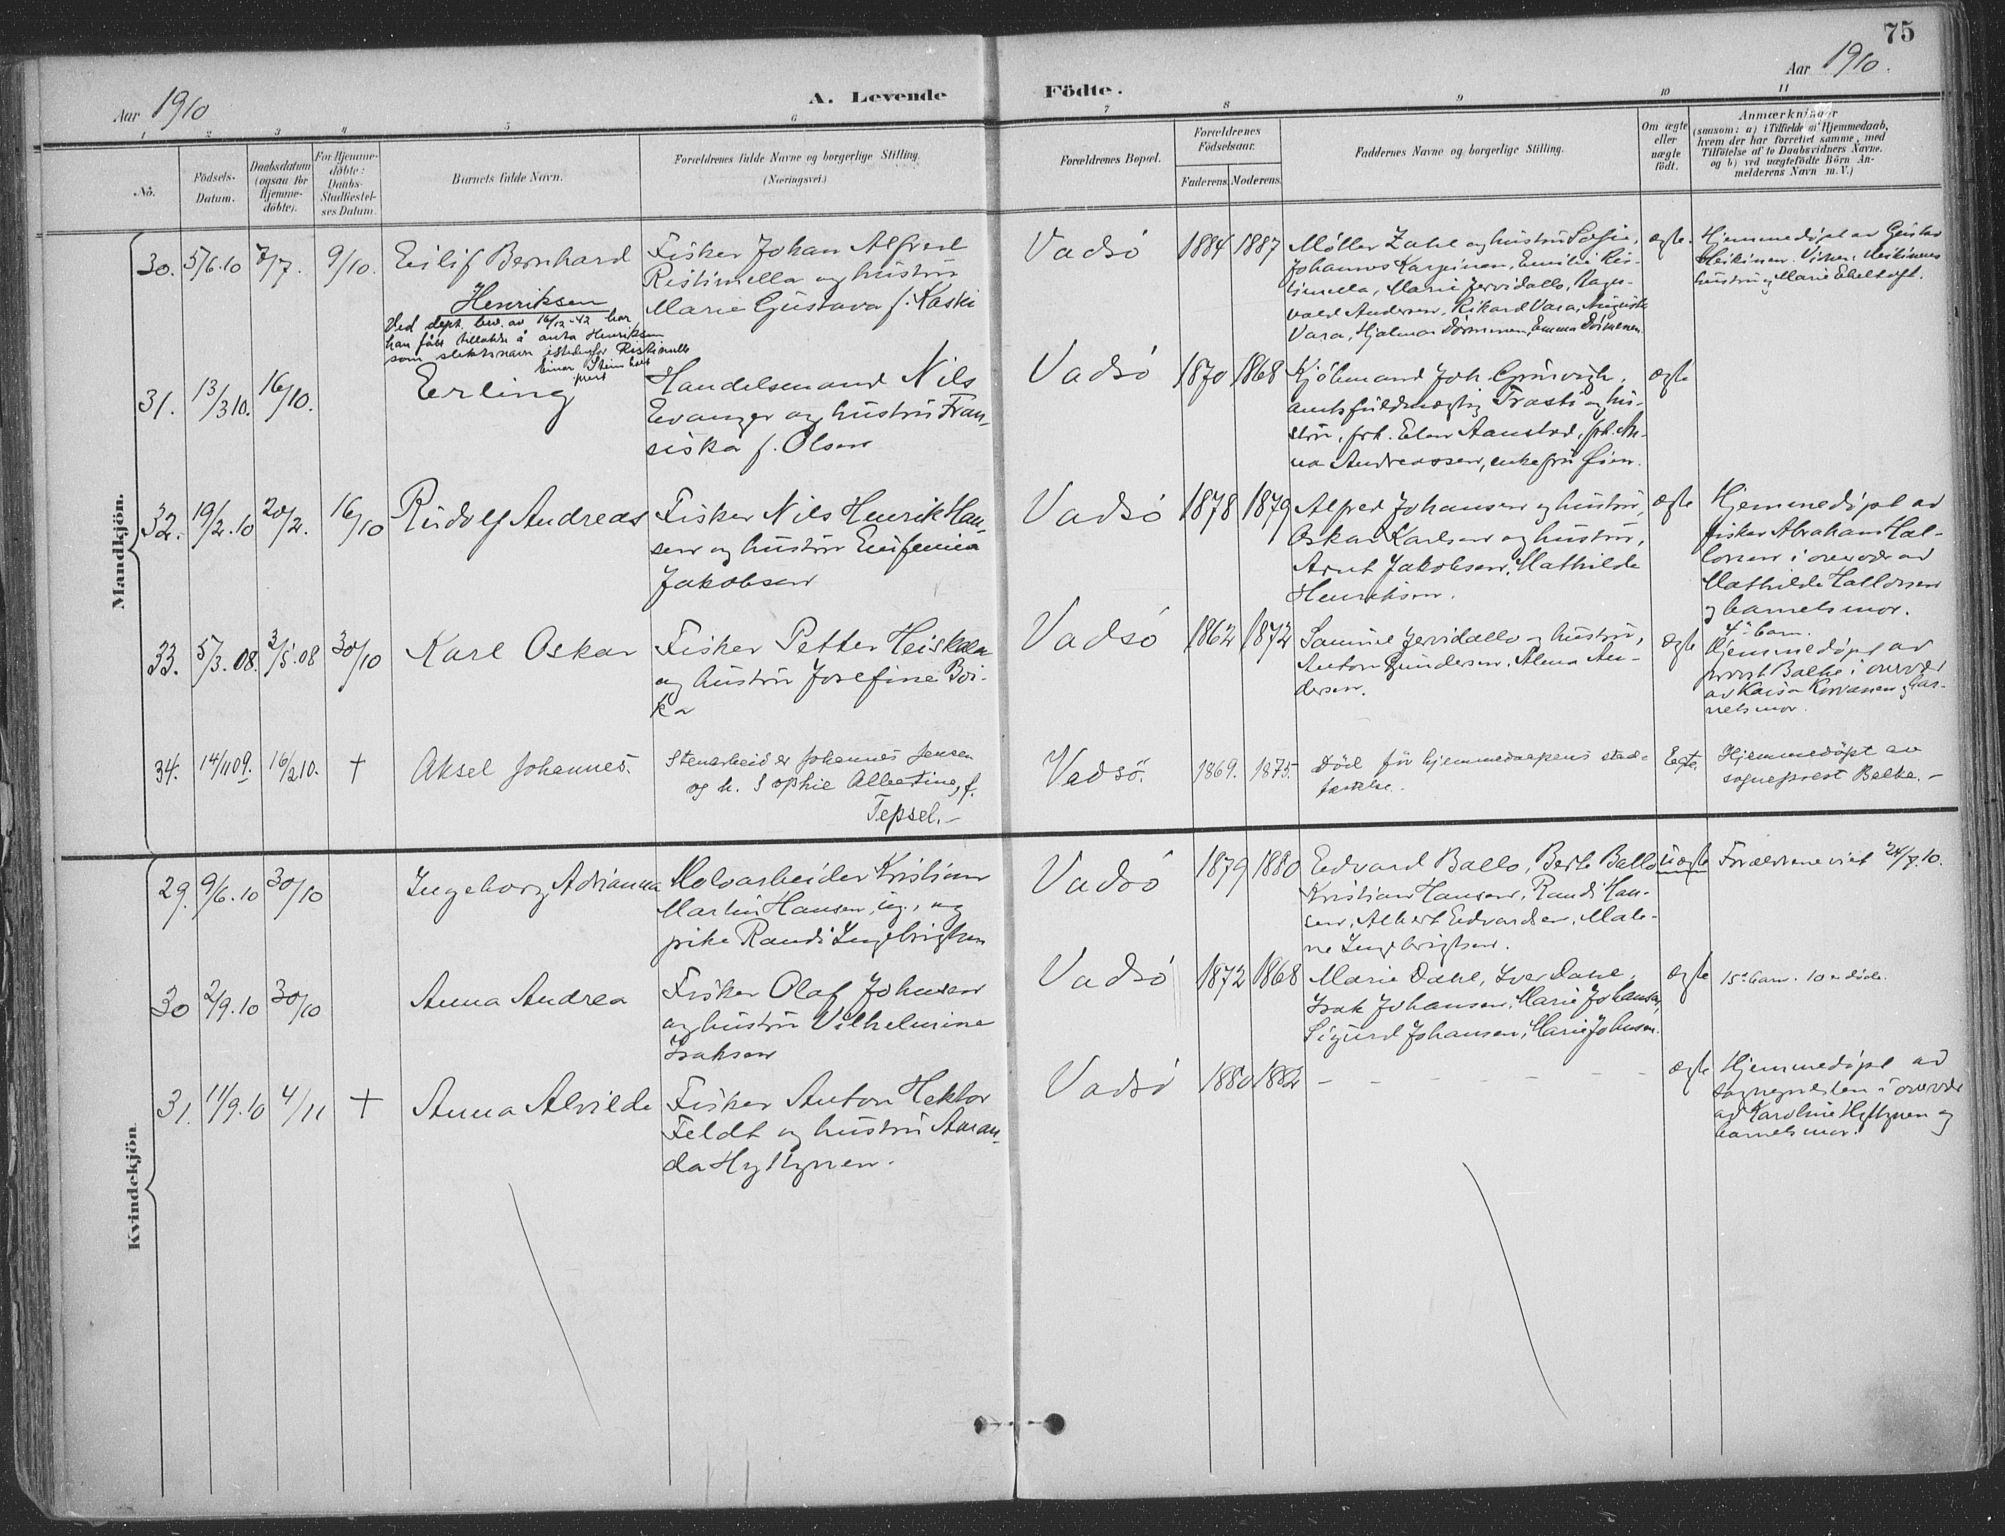 75
Aar 1910
A. Levende
Födte.
Aar 1910.
1 2 3 4 5 6 7 8 9 10 11
No.
Födsels-
Datum.
Daabsdatum
(ogsaa for
Hjemme-
döbte).
For Hjemme-
döbte:
Daabs-
Stadfæstel-
ses Datum.
Barnets fulde Navn.
Forældrenes fulde Navne og borgerlige Stilling.
(Næringsvei.)
Forældrenes Bopæl.
Forældrenes
Födselsaar.
Faderens. Moderens.
Faddernes Navne og borgerlige Stilling.
Om ægte
eller
uægte
födt.
Anmærkninger
(saasom: a) i Tilfælde af Hjemmedaab,
hvem der har forrettet samme, med
Tilföielse af to Daabsvidners Navne.
og b) ved uægtefödte Börn An-
melderens Navn m. V.)
Mandkjön.
30. 5/6.10 7/7. 9/10.
Eilif Bernhard
Henriksen
Ved dept. bev. av 16/12-42 har
han fått tillatelse å anta Henriksen
som slektsnavn istedenfor Ristimella
prest
Fisker Johan Alfred
Ristimella og hustru
Marie Gustava f. Kaski
Vadsö 1884 1887
Møller Zahl og hustru Sofie,
Johannes Karpinen, Emilie Ris-
timella, Marie Jervidallo, Ragn-
vald Andersen, Rikard Vara, Augusta
Vara, Hjalmar
ægte.
Hjemmedøpt av Gustav
Heikinen. Vidner: Heikinens
hustru og Marie
31. 13/3 10. 16/10.
Erling
Handelsmand Nils
Evanger og hustru Fran-
siska f. Olsen
Vadsö 1870 1868
Kjøbmand Joh. Grünvigh,
amtsfuldmægtig og hu-
stru, frk. Elen Aanstad, frk. An-
na Andreassen, enkefru
ægte
32. 19/2.10 20/2. 16/10
Rudolf Andreas
Fisker Nils Henrik Han-
sen og hustru Eufemia
Jakobsen
Vadsö 1878 1879
Alfred Johansen og hustru,
Oskar Karlsen og hustru,
Arnt Jakobsen, Mathilde
Henriksen.
ægte
Hjemmedøpt av
fisker Abraham Hal-
vorsen i overvær av
Mathilde Halvorsen
og barnets mor.
33. 5/3.08. 3/5.08 30/10
Karl Oskar
Fisker Petter Heiskala
og hustru Josefine Poi-
ka
Vadsö 1862 1872
Samuel Jervidallo og hustru,
Anton Gundersen, Alma An-
dersen.
ægte
4de barn.
Hjemmedøpt av
provst Balke i overvær
av Kaisa Korvanen og bar-
nets mor.
34. 14/11 09. 16/2 10. +
Aksel Johannes.
Stenarbeider Johannes Jensen
og h. Sophie Albertine, f.
Tepsel.-
Vadsö. 1869. 1875.
Död før hjemmedaapens stad-
fæstelse.
Egte.
Hjemmedøpt av
sogneprest Balke.-
Kvindekjön.
29. 9/6.10 30/10
Ingeborg Adrianna
Moloarbeider Kristian
Martin Hansen, ug., og
pike Randi Ingebrigtsen
Vadsö 1879 1880
Edvard Ballo, Berte Ballo
Kristian Hansen, Randi Han-
sen, Albert Edvardsen, Male-
ne Ingebrigtsen.
uægte
Forældrene viet 24/7.10.
30 2/9.10 30/10
Anna Andrea
Fisker Olaf Johnsen
og hustru Vilhelmine
Isaksen
Vadsö 1872 1868
Marie Dahl, Iver Dahl,
Isak Johansen, Marie Johansen,
Sigurd Johansen, Marie Johnsen.
ægte
15de barn. 10 er døde.
31. 11/9.10 4/11 +
Anna Alvilde
Fisker Anton Hektor
Feldt og hustru Aman-
da Hyttynen.
Vadsö 1880 1882
- - - - - - -
ægte
Hjemmedøpt av
sognepresten i overvær
av Karoline Hyttynen og
barnets mor.